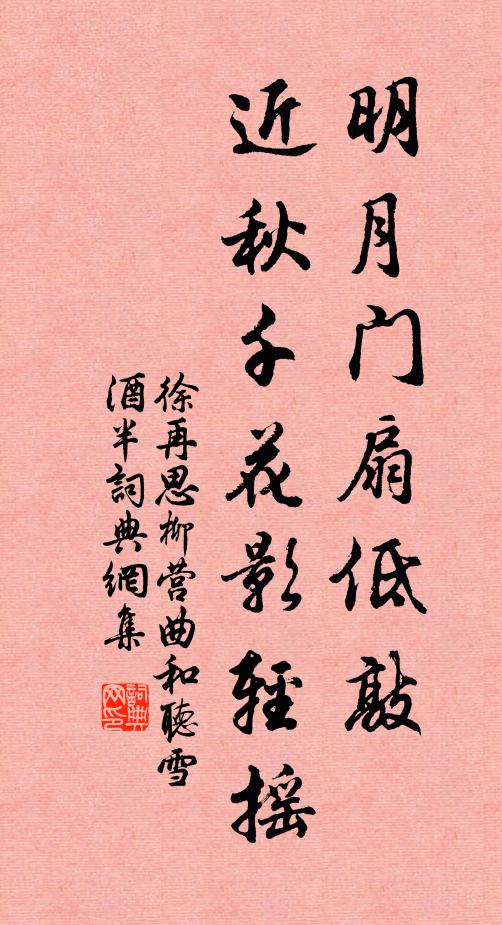 明月门扇低敲
近秋千花影輕摇
徐再思柳营曲和聽雪
酒半詞典網集
詞典网印